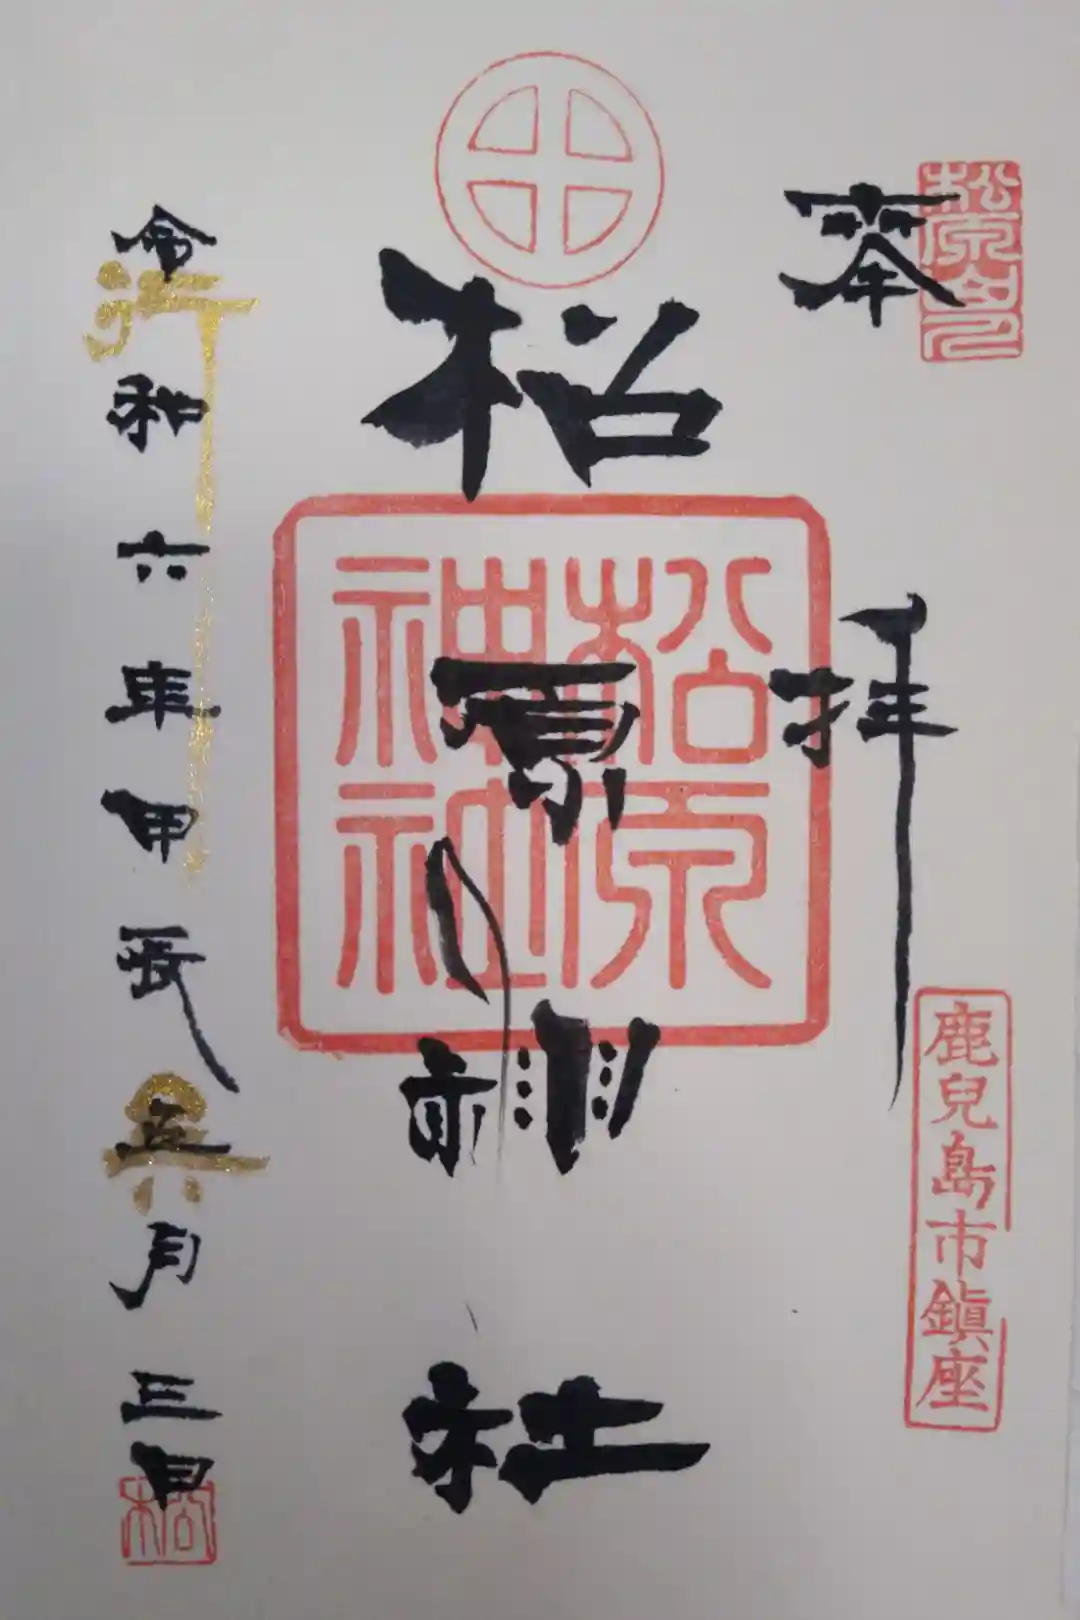 奉拝
鹿兒島市鎮座
松原神社
松原神社
令和六年甲辰五月三日
松